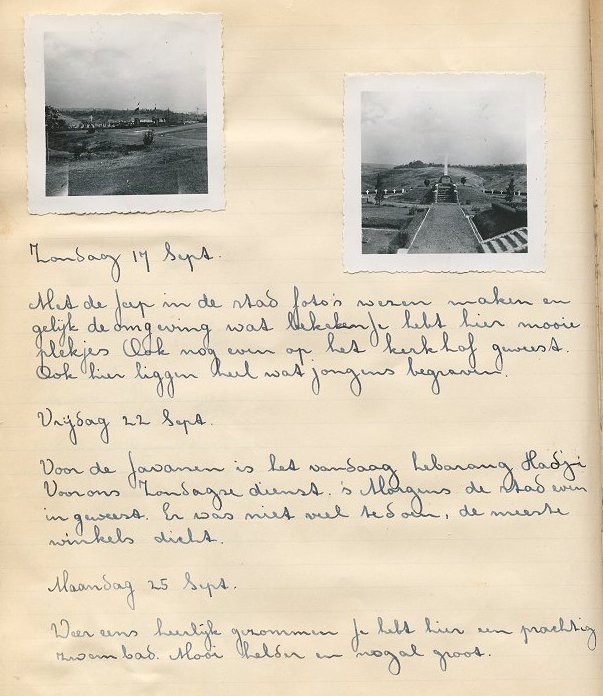 Zondag 17 Sept.
Met de Jeep in de stad foto's wezen maken en
gelijk de omgeving wat bekeken Je hebt hier mooie
plekjes Ook nog even op het kerkhof geweest.
Ook hier liggen heel wat jongens begraven.
Vrijdag 22 Sept.
Voor de Javanen is het vandaag Lebarang Hadji
Voor ons Zondagse dienst. 's Morgens de stad even
in geweest. Er was niet veel te doen, de meeste
winkels dicht.
Maandag 25 Sept.
Weer eens heerlijk gezwommen Je hebt hier een prachtig
zwembad. Mooi helder en nogal groot.